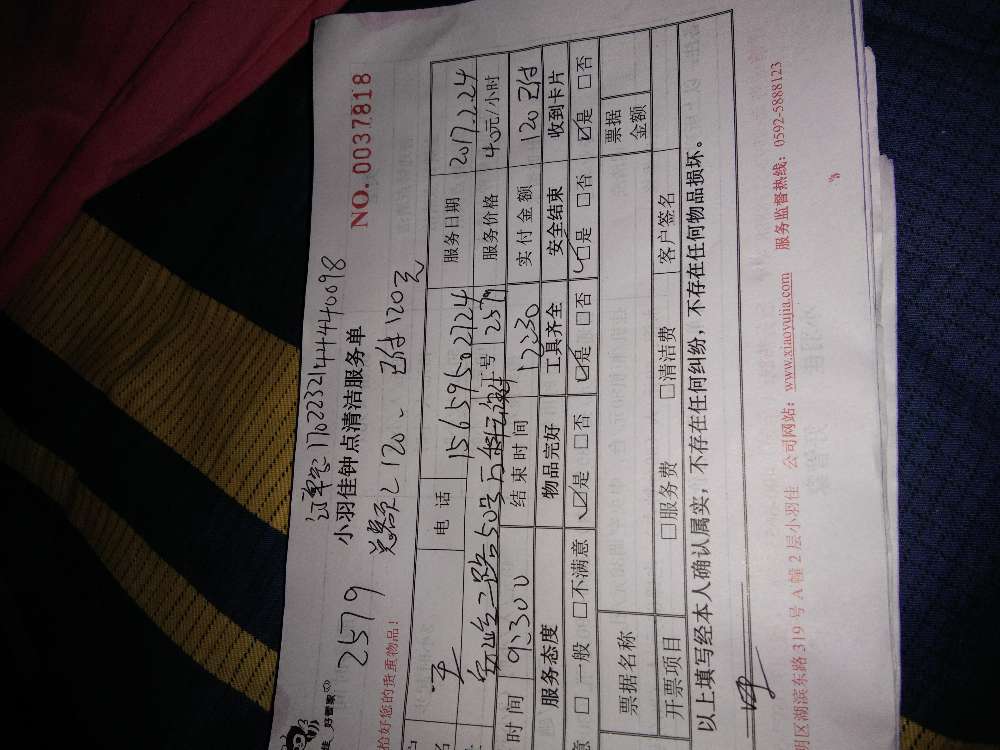 订单号:1702232144440098
小羽佳钟点清洁服务单
NO.0037818
2579 总额是120、已付120元
拾好您的贵重物品!
电话 15659502124 服务日期 2017.2.24
工号 2579 服务价格 40元/小时
时间 9:30 结束时间 12:30 实付金额 120 已付
服务态度 物品完好 工具齐全 安全结束 收到卡片
意 □一般 □不满意 ☑是 □否 ☑是 □否 ☑是 □否 ☑是 □否
票据名称 票据金额
开票项目 □服务费 □清洁费 客户签名
以上填写经本人确认属实,不存在任何纠纷,不存在任何物品损坏。
明区湖滨东路319号A幢2层小羽佳 公司网站:www.xiaoyujia.com 服务监督热线:0592-5888123